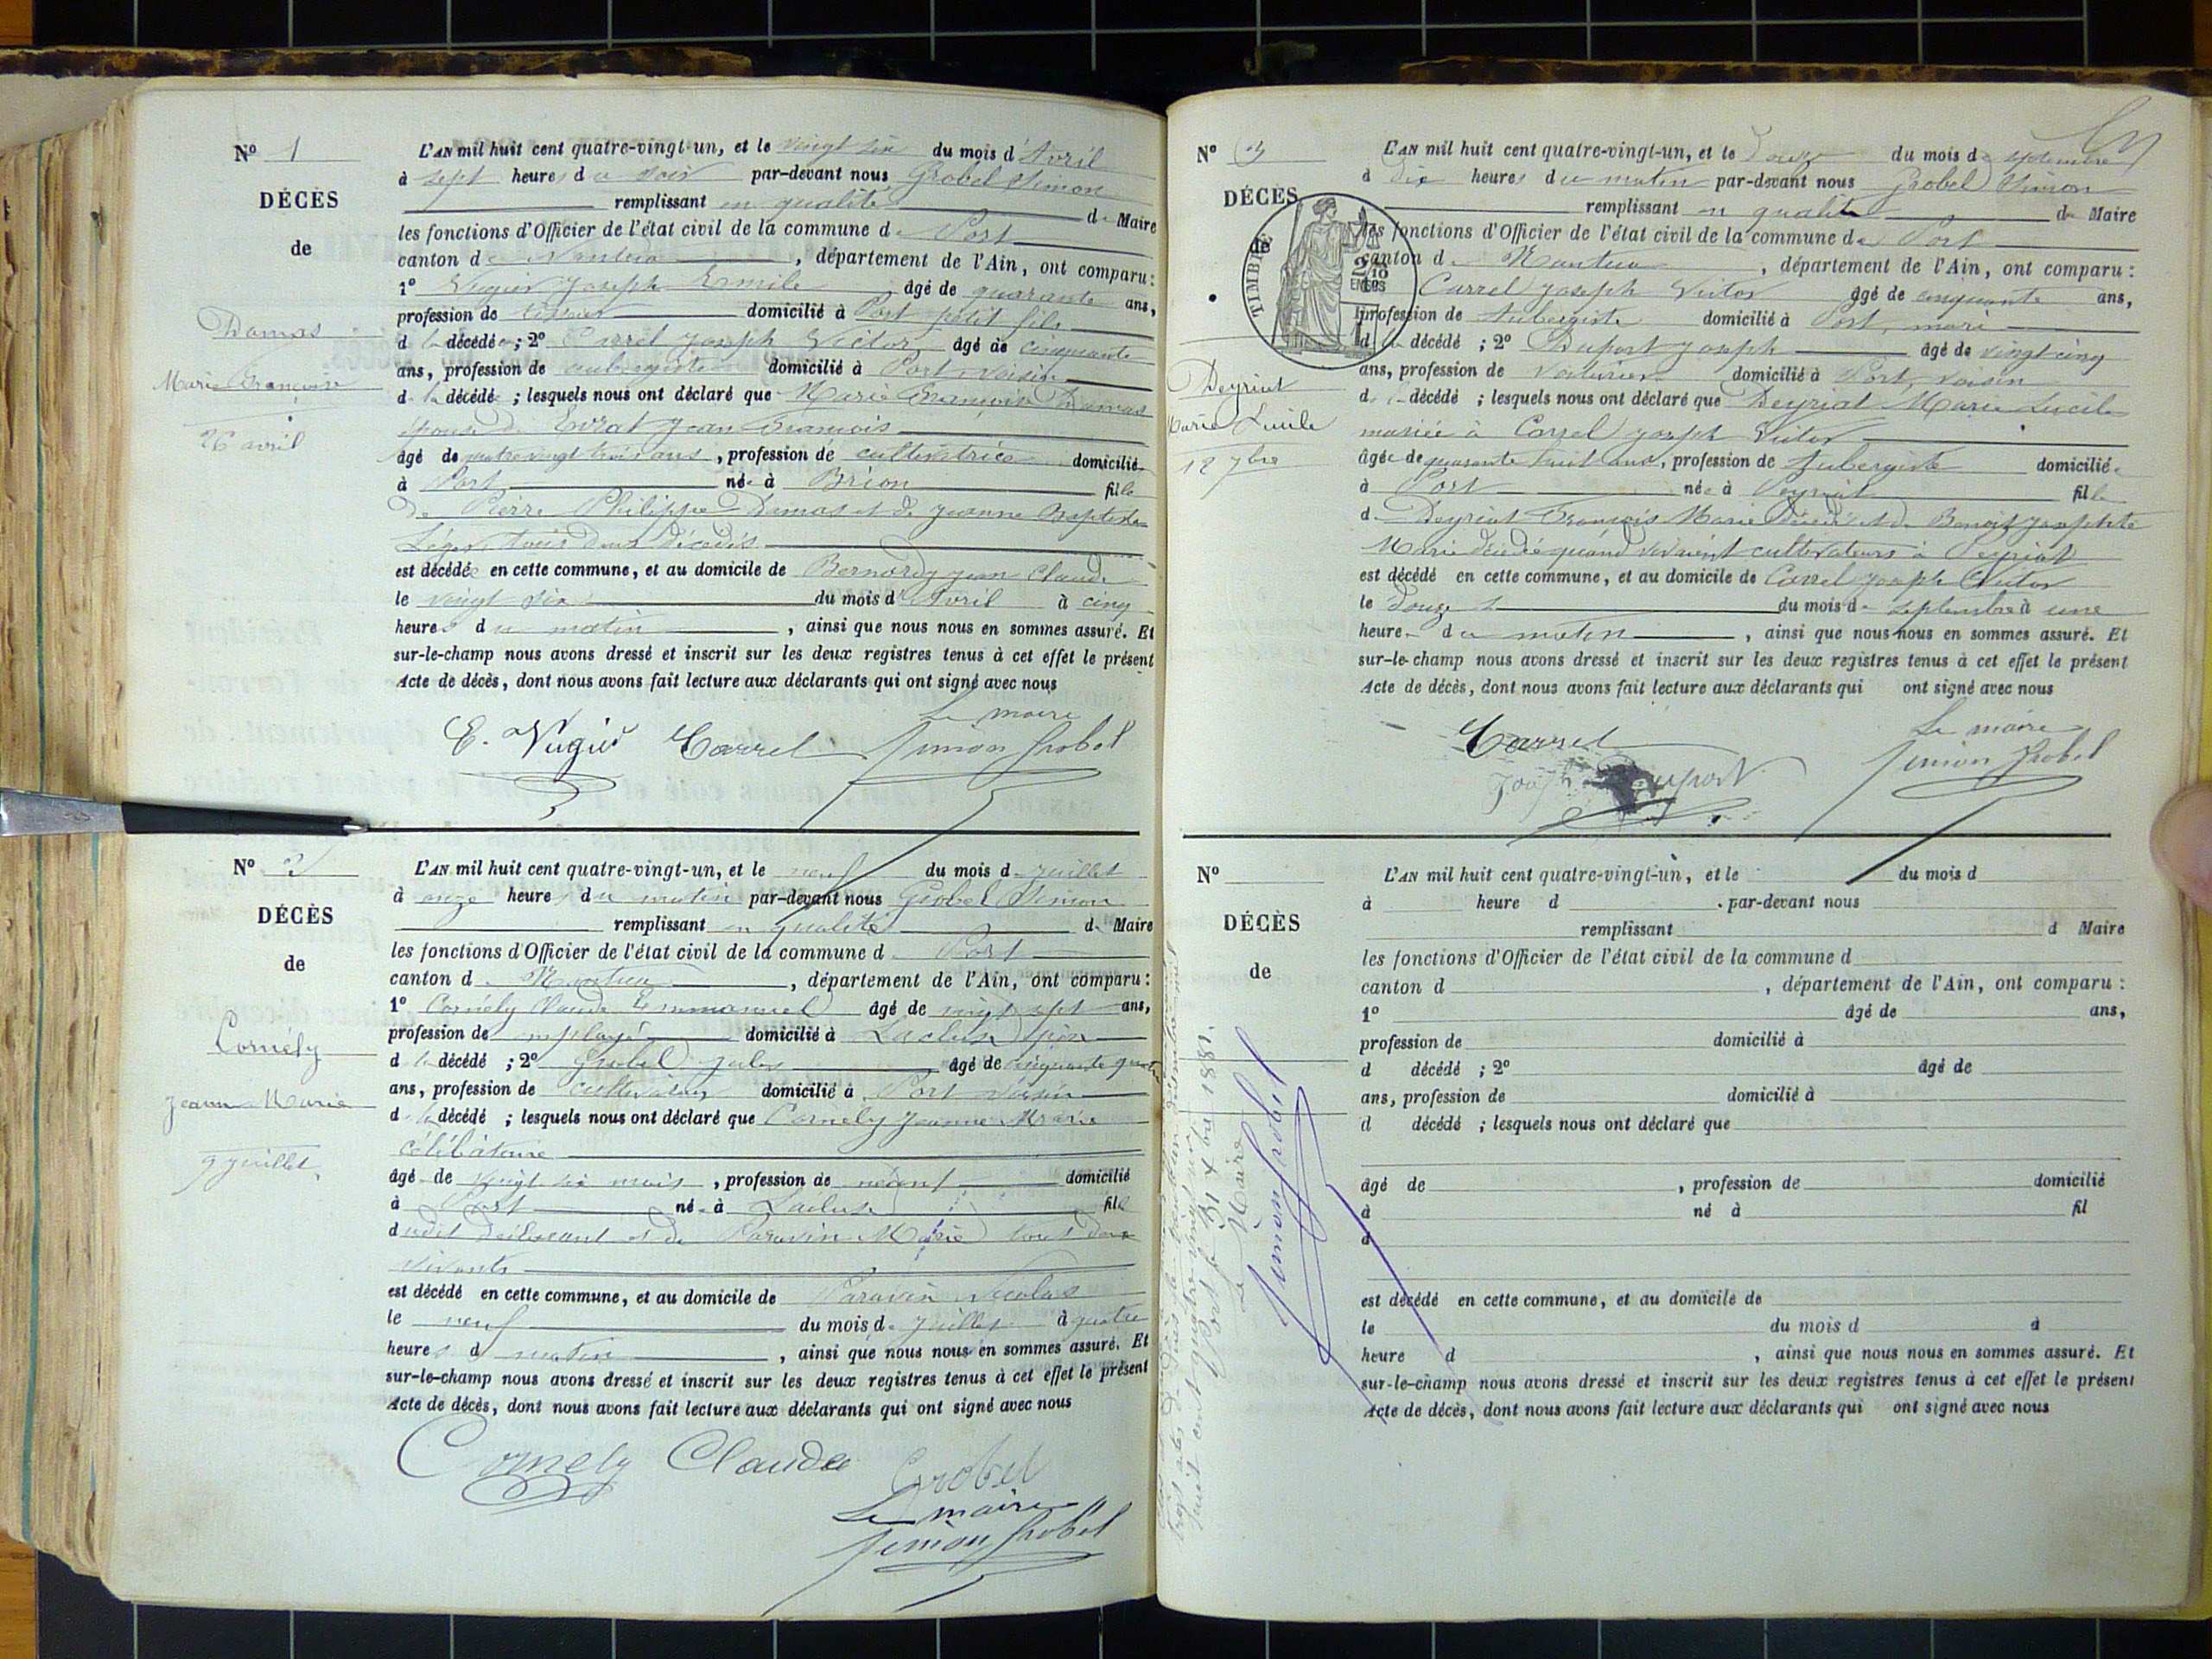 N° 1
DÉCÈS
de
Damas
Marie Françoise
26 avril
L'AN mil huit cent quatre-vingt-un, et le vingt six du mois d'Avril
à sept heures du soir par-devant nous Grobel Simon
remplissant en qualité de Maire
les fonctions d'Officier de l'état civil de la commune de Port
canton de Nantua, département de l'Ain, ont comparu :
1° Vugier Joseph Emile âgé de quarante ans,
profession de domicilié à Port petit fils
d la décédée ; 2° Carrel Joseph Victor âgé de cinquante
ans, profession de aubergiste domicilié à Port voisin
d la décédée ; lesquels nous ont déclaré que Marie Françoise Damas
épouse de Evrat Jean François
âgé de quatre vingt trois ans, profession de cultivatrice domiciliée
à Port née à Brion fille
De Pierre Philippe Damas et de Jeanne Baptiste
Léger, tous deux décédés
est décédée en cette commune, et au domicile de Bernardy Jean Claude
le vingt six du mois d'Avril à cinq
heures du matin, ainsi que nous nous en sommes assuré. Et
sur-le-champ nous avons dressé et inscrit sur les deux registres tenus à cet effet le présent
Acte de décès, dont nous avons fait lecture aux déclarants qui ont signé avec nous
Le maire
E. Vugier Carrel Simon Grobel
N° 2
DÉCÈS
de
Cornély
Jeanne Marie
9 juillet
L'AN mil huit cent quatre-vingt-un, et le neuf du mois de juillet
à onze heures du matin par-devant nous Grobel Simon
remplissant en qualité de Maire
les fonctions d'Officier de l'état civil de la commune d Port
canton d Nantua, département de l'Ain, ont comparu :
1° Cornély Claude Emmanuel âgé de vingt sept ans,
profession de employé domicilié à Lacluse père
d la décédé ; 2° Grobel Jules âgé de cinquante quatre
ans, profession de cultivateur domicilié à Port voisin
d la décédé ; lesquels nous ont déclaré que Cornély Jeanne Marie
célibataire
âgé de vingt six mois, profession de néant domicilié
à Port née à Lacluse fille
dudit déclarant et de Paravin Marie tous deux
vivants
est décédé en cette commune, et au domicile de Paravin Nicolas
le neuf du mois de juillet à quatre
heures d matin, ainsi que nous nous en sommes assuré. Et
sur-le-champ nous avons dressé et inscrit sur les deux registres tenus à cet effet le présent
Acte de décès, dont nous avons fait lecture aux déclarants qui ont signé avec nous
Cornely Claude Grobel
Le maire
Simon Grobel
N° 3
DÉCÈS
de
TIMBRE
2/10
EN SUS
Deyriat
Marie Lucile
12 7bre
L'AN mil huit cent quatre-vingt-un, et le Douze du mois de septembre
à dix heures du matin par-devant nous Grobel Simon
remplissant en qualité de Maire
les fonctions d'Officier de l'état civil de la commune de Port
canton d Nantua, département de l'Ain, ont comparu :
Carrel Joseph Victor âgé de cinquante ans,
profession de Aubergiste domicilié à Port, mari
d la décédé ; 2° Duport Joseph âgé de vingt cinq
ans, profession de Voiturier domicilié à Port, voisin
d la décédé ; lesquels nous ont déclaré que Deyriat Marie Lucile
mariée à Carrel Joseph Victor
âgée de quarante huit ans, profession de Aubergiste domiciliée
à Port née à Peyriat fille
d Deyriat François Marie décédé et de Benoit Josephte
Marie décédée quand vivaient cultivateurs à Peyriat
est décédé en cette commune, et au domicile de Carrel Joseph Victor
le Douze du mois de septembre à une
heure du matin, ainsi que nous nous en sommes assuré. Et
sur-le-champ nous avons dressé et inscrit sur les deux registres tenus à cet effet le présent
Acte de décès, dont nous avons fait lecture aux déclarants qui ont signé avec nous
Carrel Le maire
Joseph Duport Simon Grobel
N°
DÉCÈS
de
L'AN mil huit cent quatre-vingt-un, et le du mois d
à heure d par-devant nous
remplissant d Maire
les fonctions d'Officier de l'état civil de la commune d
canton d, département de l'Ain, ont comparu :
1° âgé de ans,
profession de domicilié à
d décédé ; 2° âgé de
ans, profession de domicilié à
d décédé ; lesquels nous ont déclaré que
âgé de, profession de domicilié
à né à fil
d
est décédé en cette commune, et au domicile de
le du mois d à
heure d, ainsi que nous nous en sommes assuré. Et
sur-le-champ nous avons dressé et inscrit sur les deux registres tenus à cet effet le présent
Acte de décès, dont nous avons fait lecture aux déclarants qui ont signé avec nous
huit cent quatre vingt un
à Port le 31 Xbre 1881.
Le Maire
Simon Grobel